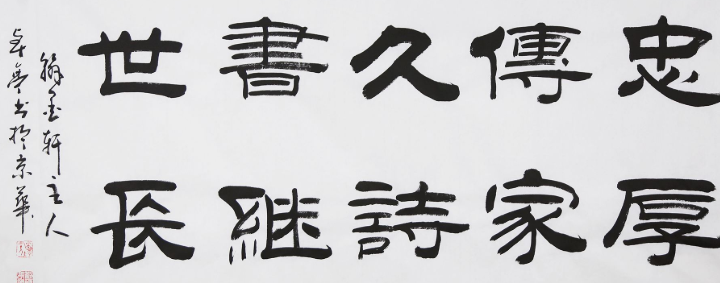 忠厚
傳家
久詩
書継
世長
翰墨軒主人
書於京華